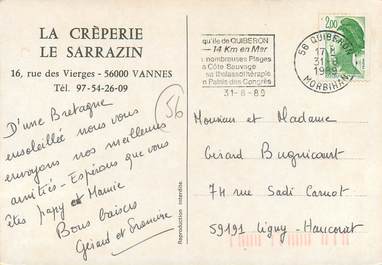 LA CRÊPERIE
LE SARRAZIN
16, rue des Vierges - 56000 VANNES
Tél. 97-54-26-09
D'une Bretagne
ensoleillée nous vous
envoyons nos meilleures
amitiés - Espérons que vous
êtes papy et Mamie
Bons baisers
Gérard et
56
Reproduction interdite.
qu'ile de QUIBERON
14 Km en Mer
nombreuses Plages
a Côte Sauvage
sa thalassothérapie
n Palais des Congrès
31-8-89
56 QUIBERON
17 H
31-8
1989
MORBIHAN
2,00
Monsieur et Madame
Gérard Bugnicourt
74 rue Sadi Carnot
59191 Ligny-Haucourt